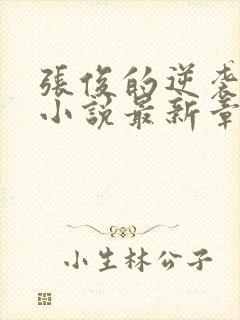 張俊的逆袭
小説最新章
小生林公子